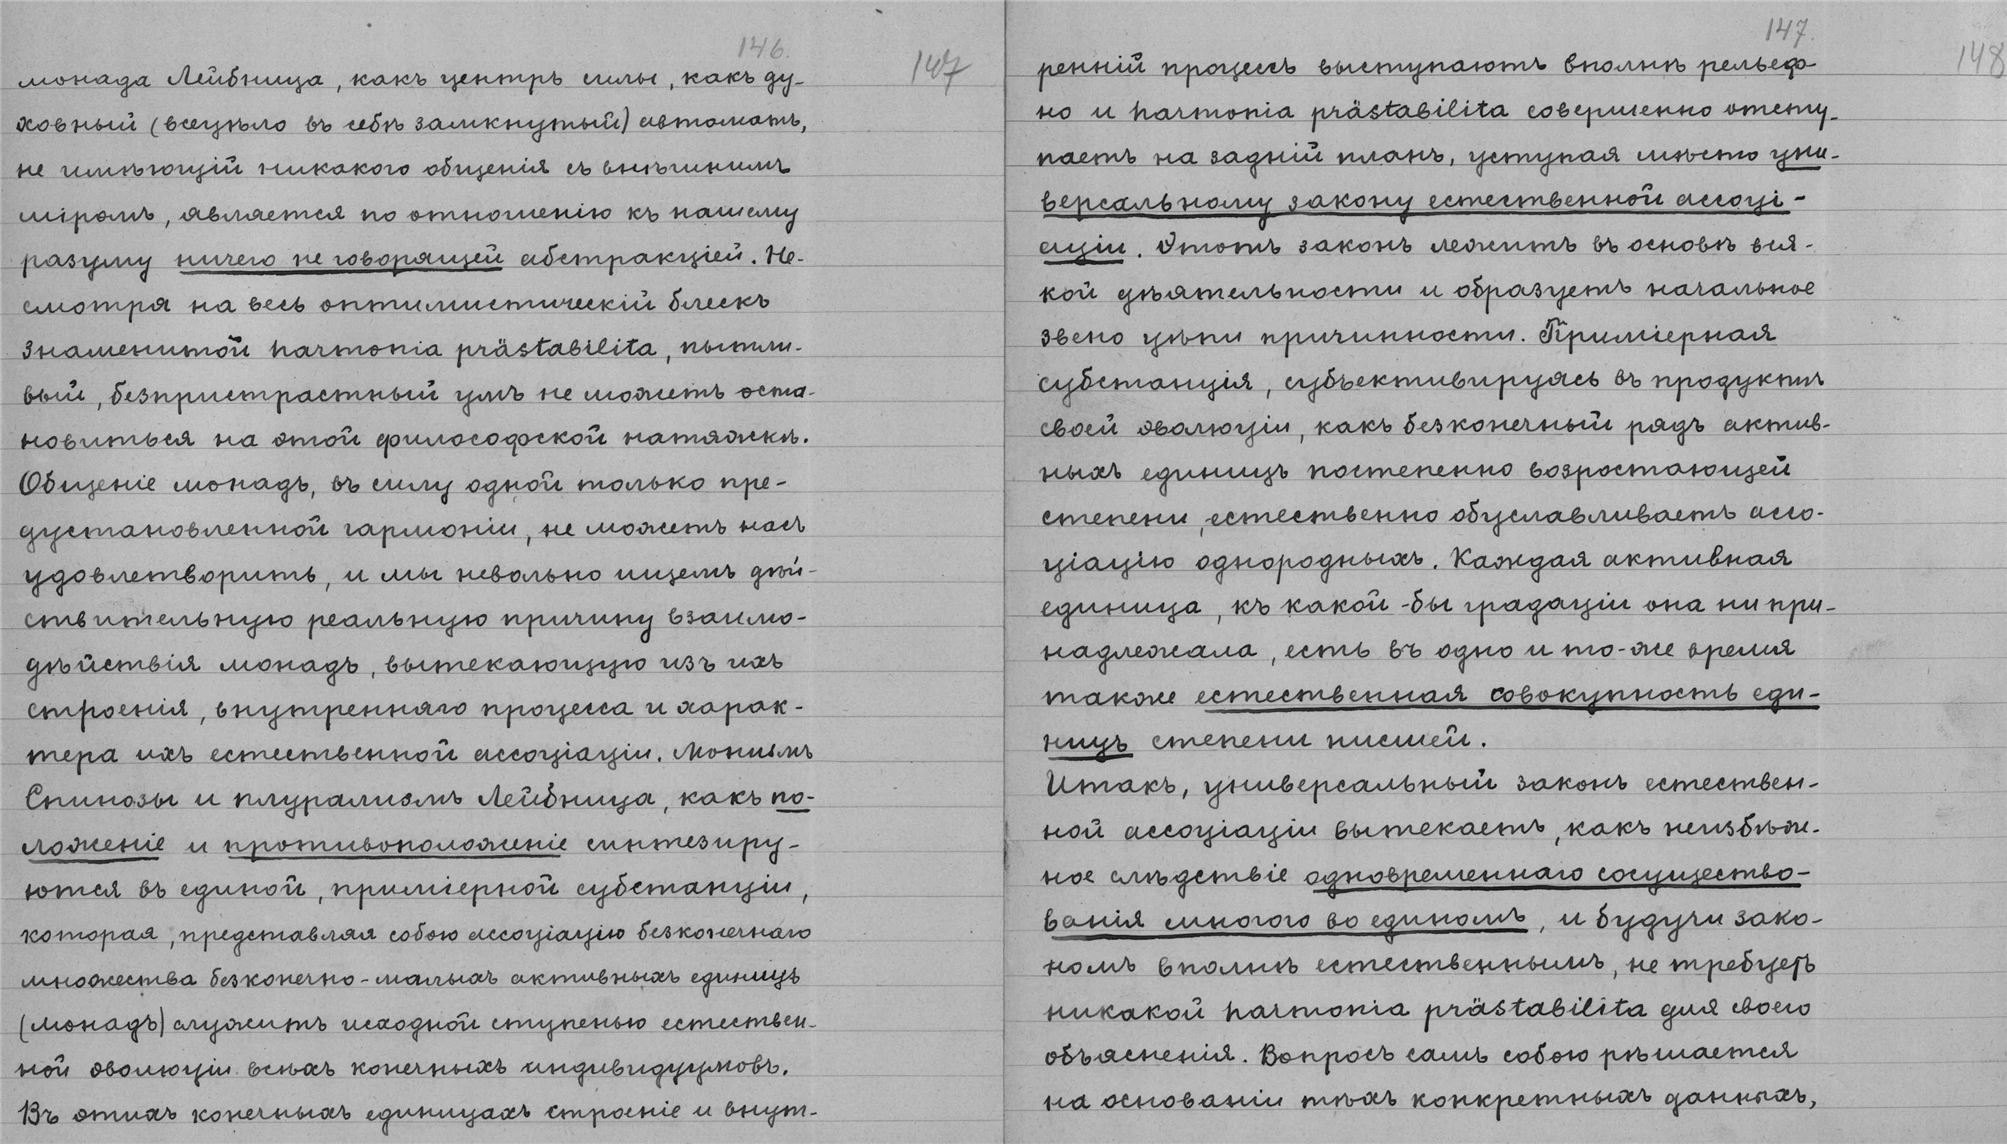 146.
147
монада Лейбница, какъ центръ силы, какъ ду-
ховный (всецѣло въ себѣ замкнутый) автоматъ,
не имѣющій никакого общенія съ внѣшнимъ
міромъ, является по отношенію къ нашему
разуму ничего не говорящей абстракціей. Не-
смотря на весь оптимистическій блескъ
знаменитой harmonia prästabilita, пытли-
вый, безпристрастный умъ не можетъ оста-
новиться на этой философской натяжкѣ.
Общеніе монадъ, въ силу одной только пре-
дустановленной гармоніи, не можетъ насъ
удовлетворить, и мы невольно ищемъ дѣй-
ствительную реальную причину взаимо-
дѣйствія монадъ, вытекающую изъ ихъ
строенія, внутренняго процесса и харак-
тера ихъ естественной ассоціаціи. Монизмъ
Спинозы и плурализмъ Лейбница, какъ по-
ложеніе и противоположеніе синтезиру-
ются въ единой, приміерной субстанціи,
которая, представляя собою ассоціацію безконечнаго
множества безконечно-малыхъ активныхъ единицъ
(монадъ) служитъ исходной ступенью естествен-
ной эволюціи всѣхъ конечныхъ индивидуумовъ.
Въ этихъ конечныхъ единицахъ строеніе и внут-
147.
148
ренній процессъ выступаютъ вполнѣ рельеф-
но и harmonia prästabilita совершенно отсту-
паетъ на задній планъ, уступая мѣсто уни-
версальному закону естественной ассоці-
аціи. Этотъ законъ лежитъ въ основѣ вся-
кой дѣятельности и образуетъ начальное
звено цѣпи причинности. Приміерная
субстанція, субъективируясь въ продуктѣ
своей эволюціи, какъ безконечный рядъ актив-
ныхъ единицъ постепенно возростающей
степени, естественно обуславливаетъ ассо-
ціацію однородныхъ. Каждая активная
единица, къ какой-бы градаціи она ни при-
надлежала, есть въ одно и то-же время
также естественная совокупность еди-
ницъ степени низшей.
Итакъ, универсальный законъ естествен-
ной ассоціаціи вытекаетъ, какъ неизбѣж-
ное слѣдствіе одновременнаго сосущество-
ванія многого во единомъ, и будучи зако-
номъ вполнѣ естественнымъ, не требуетъ
никакой harmonia prästabilita для своего
объясненія. Вопросъ самъ собою рѣшается
на основаніи тѣхъ конкретныхъ данныхъ,